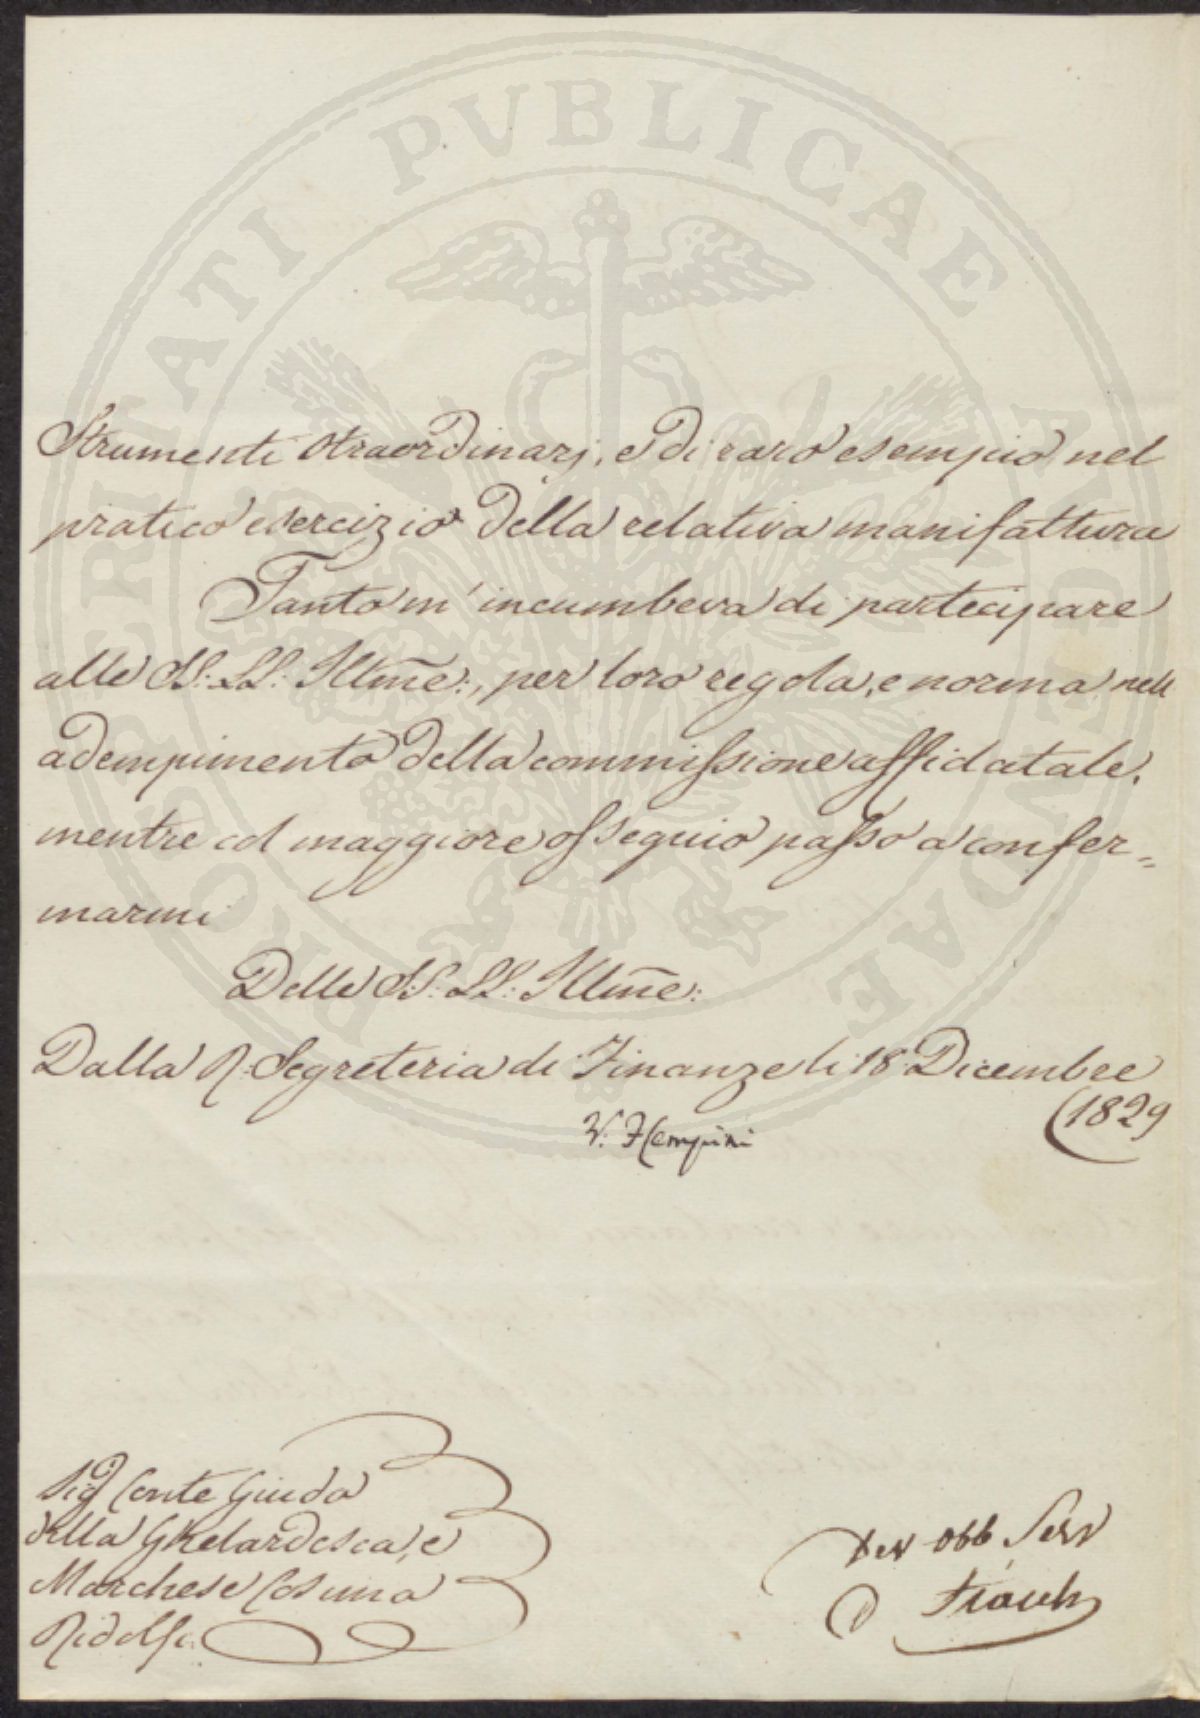 PROSPERITATI PVBLICAE AVGENDAE
Strumenti straordinarj, e di raro esempio nel
pratico esercizio della relativa manifattura
Tanto m'incumbeva di partecipare
alle SS: LL: Illme:, per loro regola, e norma nell
adempimento della commissione affidatale,
mentre col maggiore ossequio passo a confer=
marmi
Delle SS: LL: Illme:
Dalla R: Segreteria di Finanze li 18 Dicembre
(1829
V: F Cempini
Sig Conte Guido
della Gherardesca, e
Marchese Cosimo
Ridolfi
Dev Obb Serv